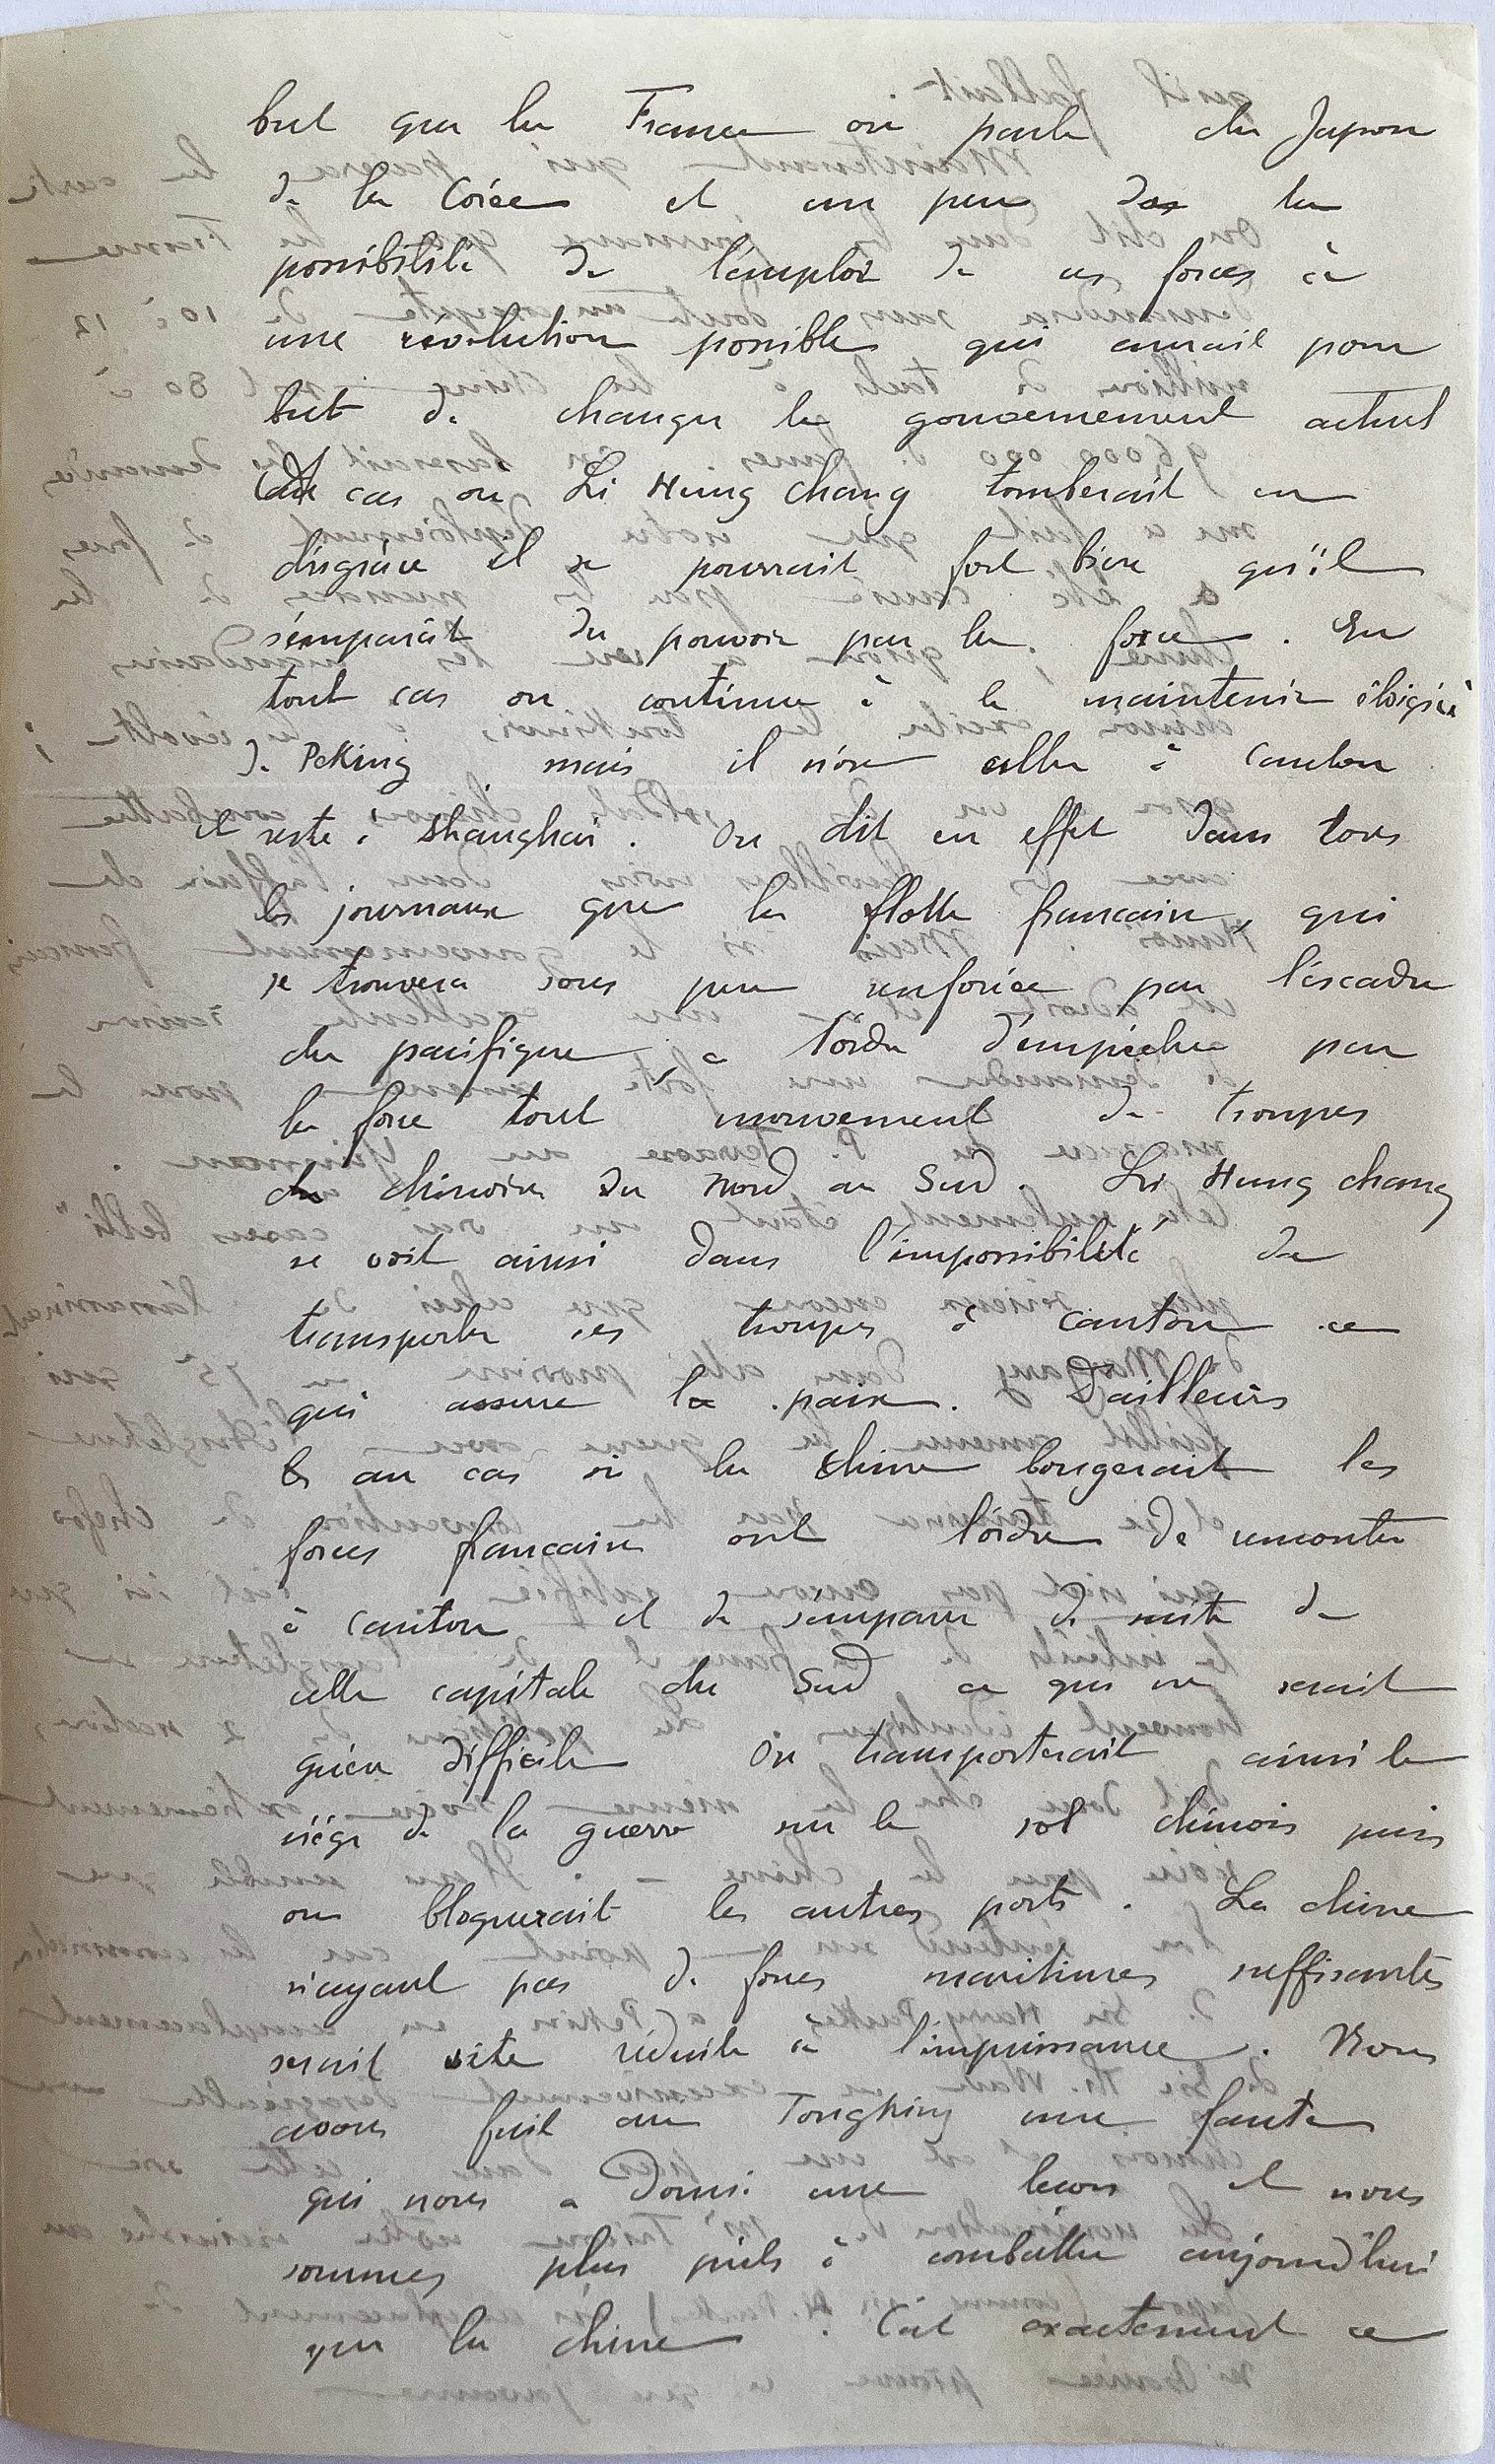 but que la France on parle du Japon
de la Corée et un peu de la
possibilité de l'emploi de ces forces à
une révolution possible qui aurait pour
but de changer le gouvernement actuel
au cas ou Li Hung Chang tomberait en
disgrâce il se pourrait fort bien qu'il
s'emparât du pouvoir par la force. En
tout cas on continue à le maintenir éloigné
de Peking mais il n'ose aller à Canton
et reste à Shanghai. On dit en effet dans tous
les journaux que la flotte francaise, qui
se trouvera sous peu renforcée par l'escadre
du pacifique a l'ordre d'empêcher par
la force tout mouvement de troupes
chinoises du nord au Sud. Li Hung chang
se voit ainsi dans l'impossibilité de
transporter ses troupes à Canton ce
qui assure la paix. D'ailleurs
au cas si la Chine bougerait les
forces francaises ont l'ordre de remonter
à Canton et de s'emparer de suite de
cette capitale du Sud ce qui ne serait
qu'en difficile On transporterait ainsi le
siège de la guerre sur le sol chinois puis
on bloquerait les autres ports. La chine
n'ayant pas de forces maritimes suffisantes
serait vite réduite à l'impuissance. Nous
avons fait au Tongking une faute
qui nous a donné une lecon et nous
sommes plus prêts à combattre aujourd'hui
que la chine. C'est exactement ce